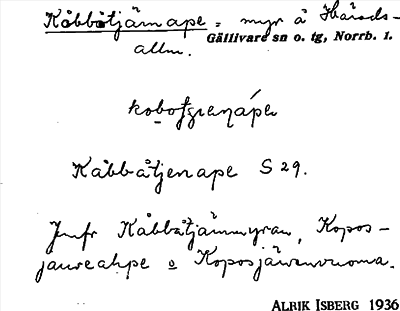 Kåbbåtjärnape = myr å Härads-
allm. Gällivare sn o. tg, Norrb. 1.
Kåbbåtjenape S 29.
Jmfr Kåbbåtjärnmyran, Kopos-
jaureahpe o Koposjärvenvuoma.
ALRIK ISBERG 1936